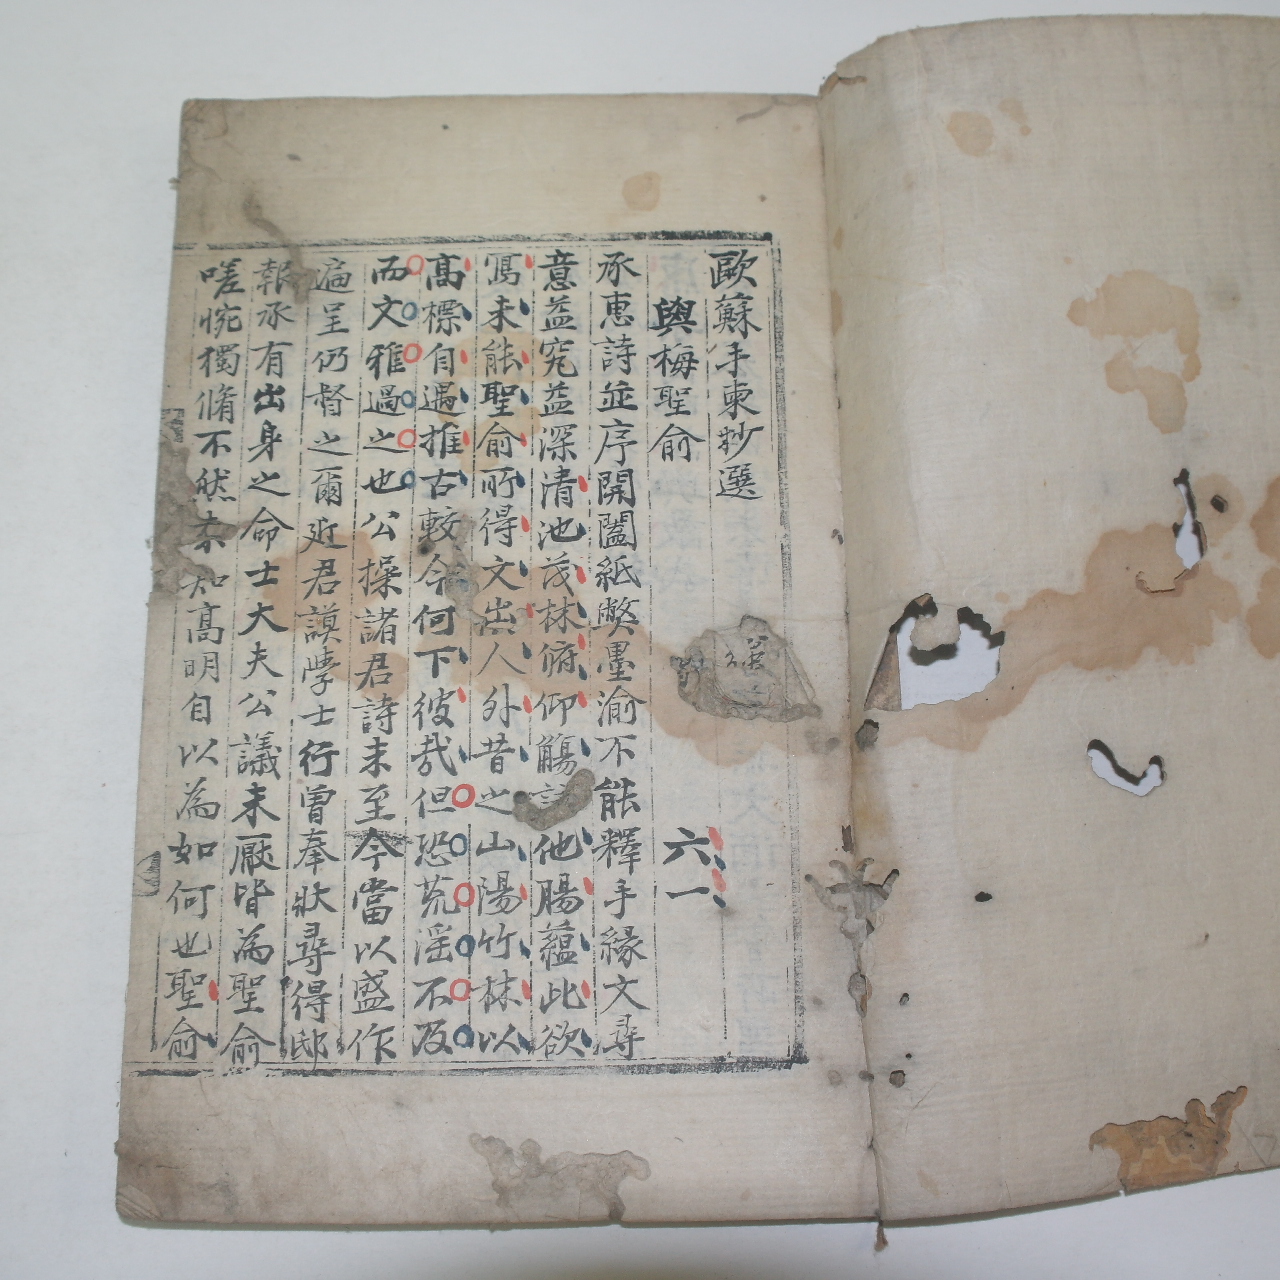 歐蘇手柬抄選
與梅聖俞 六一
承惠詩並序開闔紙弊墨渝不能釋手緣文尋
意益究益深清池茂林俯仰觴詠他腸蘊此欲
寫未能聖俞所得文出人外昔之山陽竹林以
高標自遇推古較今何下彼哉但恐荒淫不及
而文雅過之也公操諸君詩未至今當以盛作
遍呈仍督之爾近君謨學士行曾奉狀尋得邸
報承有出身之命士大夫公議未厭皆為聖俞
嗟惋獨脩不然未知高明自以為如何也聖俞